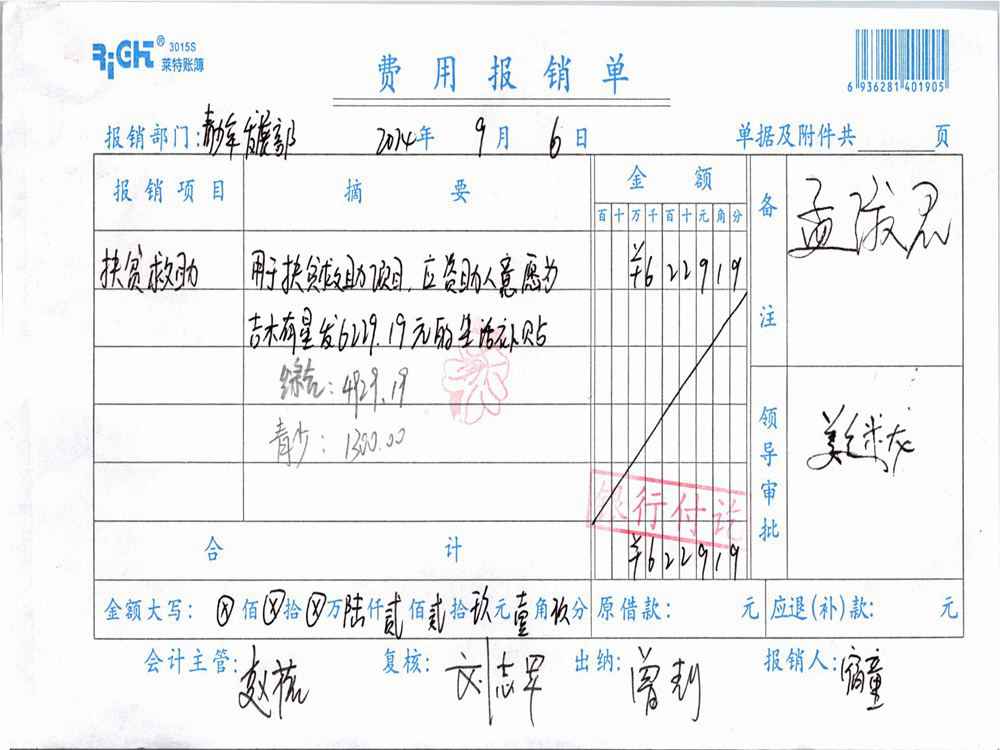 RiGHT® 3015S
莱特账簿
费用报销单
6 936281 401905
报销部门:青少年发展部 2014年 9月 6日 单据及附件共 页
报销项目 摘要 金额 备注
百十万千百十元角分
扶贫救助 用于扶贫救助项目,应资助人意愿为 ¥622919
吉木有星发6229.19元的生活补贴
综合:4929.19
青少:1300.00
银行付讫
合计 ¥622919
领导审批
金额大写:ⓧ佰ⓧ拾ⓧ万陆仟贰佰贰拾玖元壹角玖分 原借款: 元 应退(补)款: 元
会计主管: 复核: 出纳: 报销人: